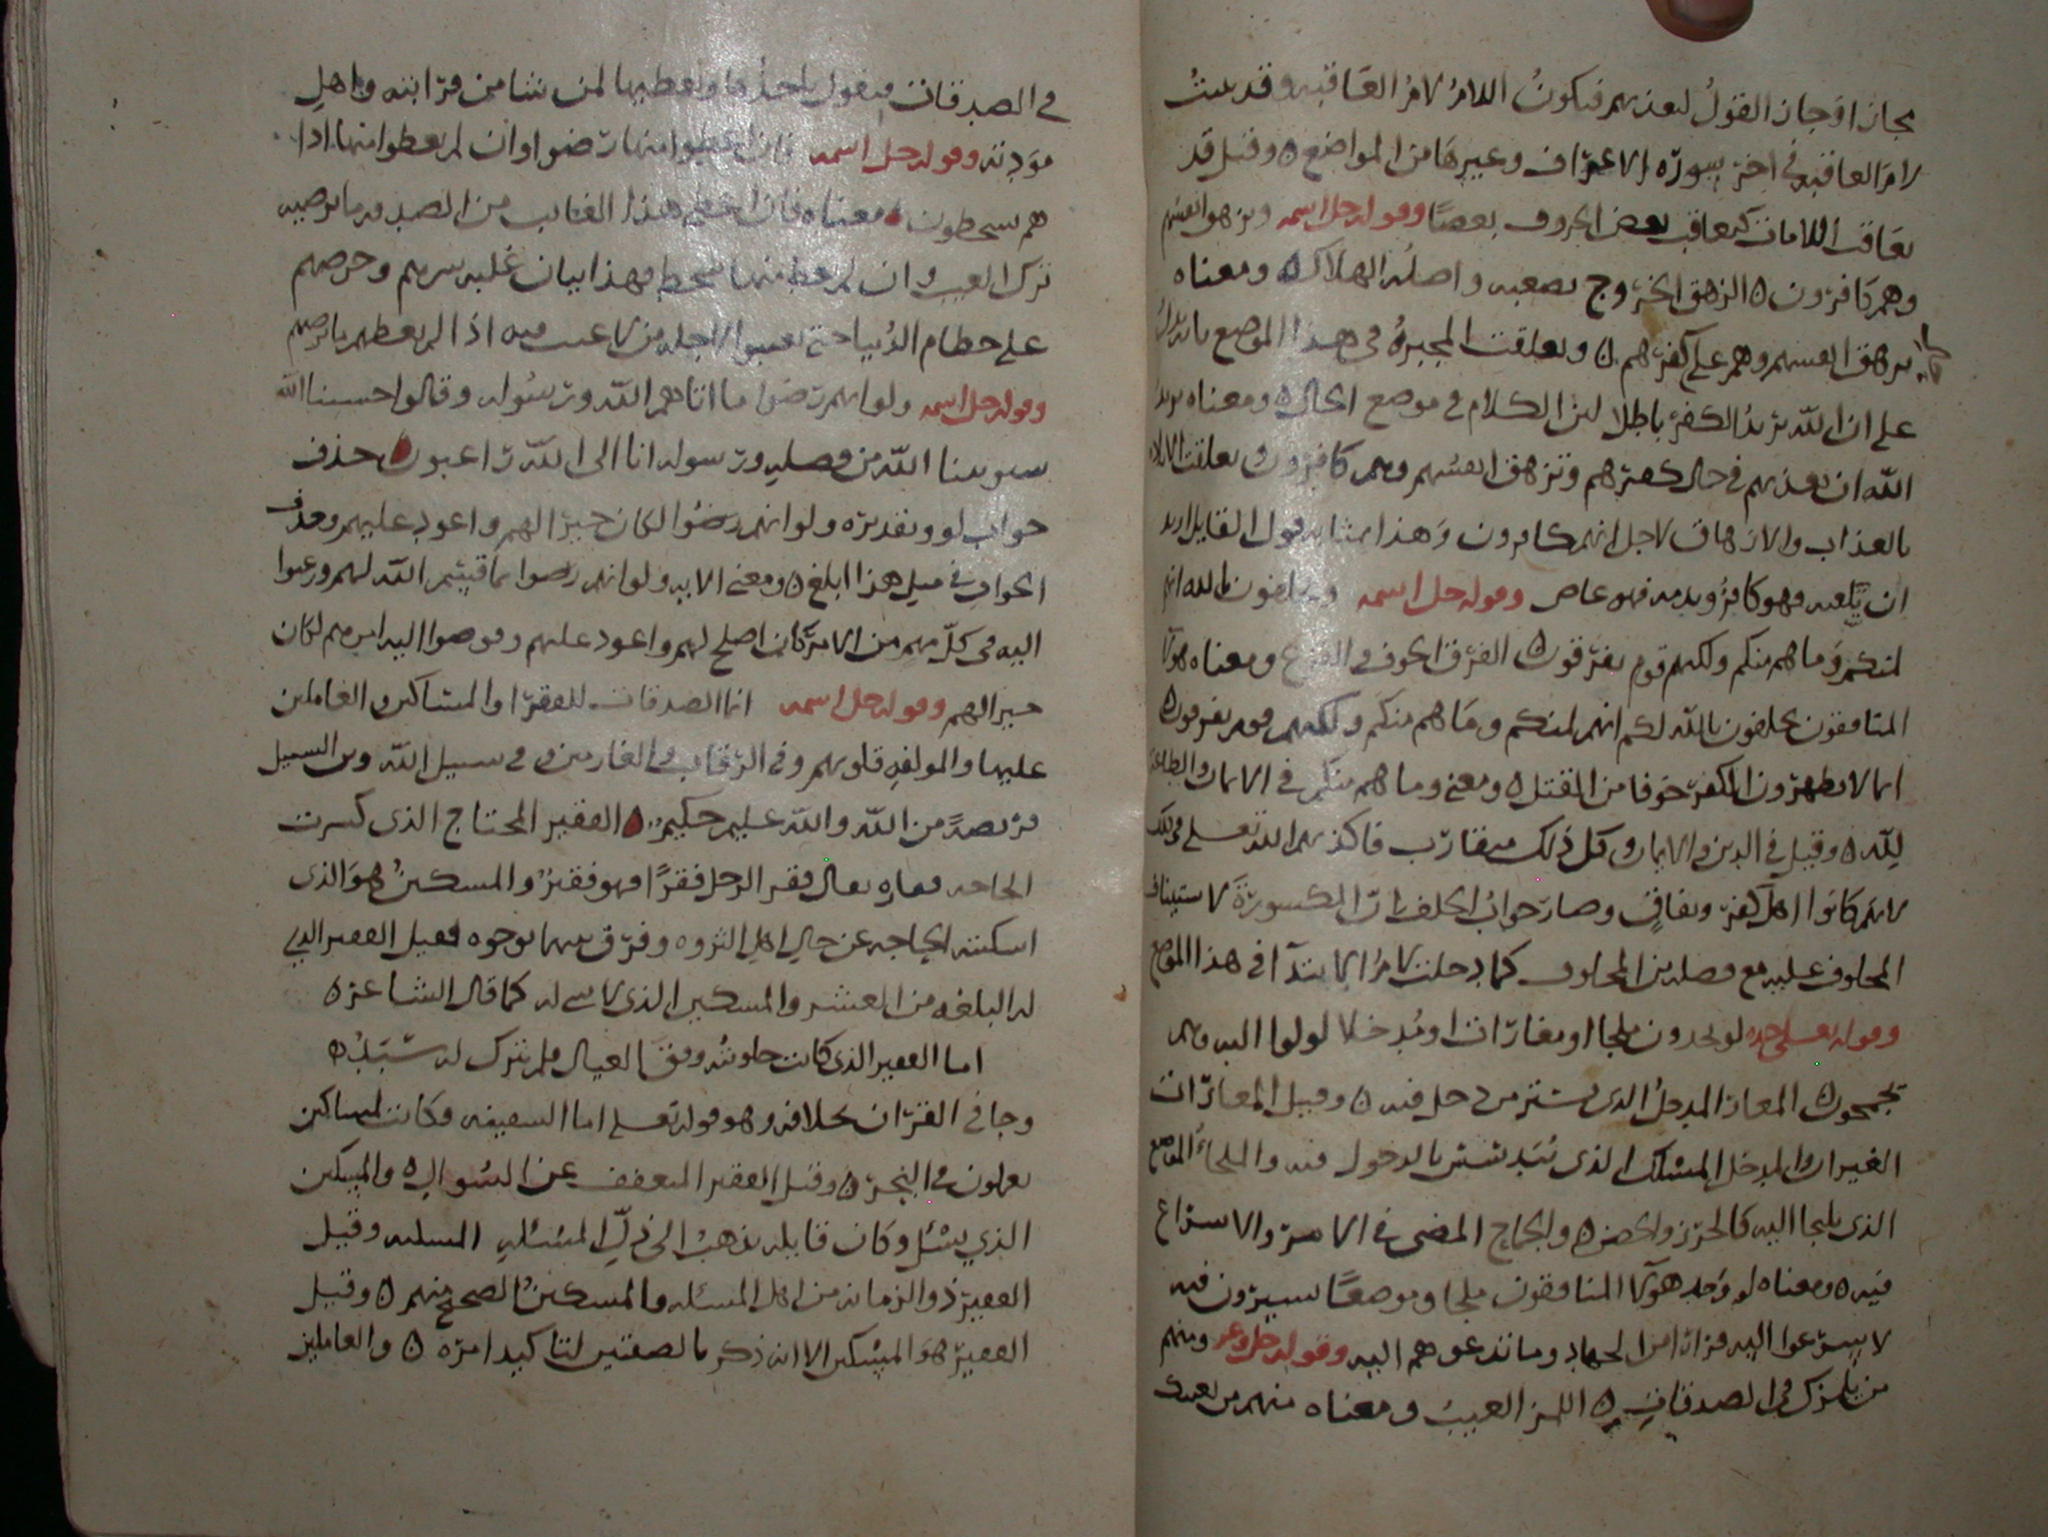 مجاز اوجاز القول ليعذبهم فيكون اللام لام العاقبه وقد بينت
لام العاقبه في اخر سورة الاعراف وغيرها من المواضع ٥ وقيل قد
تعاقب اللامات كتعاقب بعض الحروف بعضا وقوله جل اسمه وتزهق انفسهم
وهم كافرون ٥ الزهق الخروج بصعبه واصله الهلاك ٥ ومعناه
تزهق انفسهم وهم على كفرهم ٥ وتعلقت المجبرة في هذا الموضع بانه يدل
على ان الله يريد الكفر باطل لان الكلام في موضع الحال ٥ ومعناه يريد
الله ان يعذبهم في حال كفرهم وتزهق انفسهم وهم كافرون وتعلقت الاراده
بالعذاب والازهاق لاجل انهم كافرون وهذا بمثابه قول القايل اريد
ان يلعنه وهو كافر ويذمه وهو عاص وقوله جل اسمه ويحلفون بالله انهم
لمنكم وما هم منكم ولكنهم قوم يفرقون ٥ الفرق الخوف والفزع ومعناه هولا
المنافقون يحلفون بالله لكم انهم لمنكم وما هم منكم ولكنهم قوم يفرقون ٥
انما لا يظهرون الكفر خوفا من القتل ٥ ومعنى وما هم منكم في الايمان والطاعة
لله ٥ وقيل في الدين والايمان وكل ذلك متقارب فاكذبهم الله تعلى في ذلك
لانهم كانوا اهل كفر ونفاق وصار جواب الحلف بان المكسورة لاستيناف
المحلوف عليه مع فصله من المحلوف كما دخلت لام الابتدا في هذا الموضع
وقوله تعلى جده لو يجدون ملجا او مغارات او مدخلا لولوا اليه وهم
يجمحون ٥ المغار المدخل الذي يستتر من دخل فيه ٥ وقيل المغارات
الغيران والمدخل المسلك الذي يتدسس بالدخول فيه والملجا الموضع
الذي يلجا اليه كالحرز والحصن ٥ والجماح المضى في الامر والاسراع
فيه ٥ ومعناه لو وجد هولا المنافقون ملجا وموضعا يسيرون فيه
لاسرعوا اليه فرارا من الجهاد وما تدعوهم اليه وقوله جل وعز ومنهم
من يلمزك في الصدقات ٥ اللمز العيب ومعناه منهم من يعيبك
في الصدقات فيقول ياخذها ويعطيها لمن شا من قرابته واهل
مودته وقوله جل اسمه فان اعطوا منها رضوا وان لم يعطوا منها اذا
هم يسخطون ٥ معناه فان اعطى هذا العايب من الصدقه ما يرضيه
ترك العيب وان لم يعط منها سخط فهذا بيان غلبه شرهم وحرصهم
على حطام الدنيا حتى يعيبوا لاجله من لا عيب فيه اذا لم يعطهم ما يرضيهم
وقوله جل اسمه ولو انهم رضوا ما اتاهم الله ورسوله وقالوا حسبنا الله
سيوتينا الله من فضله ورسوله انا الى الله راغبون ٥ حذف
جواب لو وتقديره ولو انهم رضوا لكان خيرا لهم واعود عليهم وحذف
الجواب في مثل هذا ابلغ ٥ ومعنى الايه ولو انهم رضوا بما قسم الله لهم ورغبوا
اليه في كل مهم من الامر كان اصلح لهم واعود عليهم وفوضوا اليه امرهم لكان
خيرا لهم وقوله جل اسمه انما الصدقات للفقرا والمساكين والعاملين
عليها والمولفه قلوبهم وفي الرقاب والغارمين وفي سبيل الله وبن السبيل
فريضة من الله والله عليم حكيم ٥ الفقير المحتاج الذي كسرت
الحاجه فقاره يقال فقر الرجل فقرا فهو فقير والمسكين هو الذي
اسكنته الحاجه عن حال اهل الثروه وفرق بينهما بوجوه فقيل الفقير الذي
له البلغه من العيش والمسكين الذي لا شي له كما قال الشاعر ٥
اما الفقير الذي كانت حلوبته وفق العيال فلم يترك له سبد ٥
وجا في القران بخلافه وهو قوله تعلى اما السفينه فكانت لمساكين
يعملون في البحر ٥ وقيل الفقير المتعفف عن السوال ٥ والمسكين
الذي يسئل وكان قايله يذهب الى ذل المسئله المسله وقيل
الفقير ذو الزمانه من اهل المسئله والمسكين الصحيح منهم ٥ وقيل
الفقير هو المسكين الا انه ذكر بالصفتين لتاكيد امره ٥ والعاملين